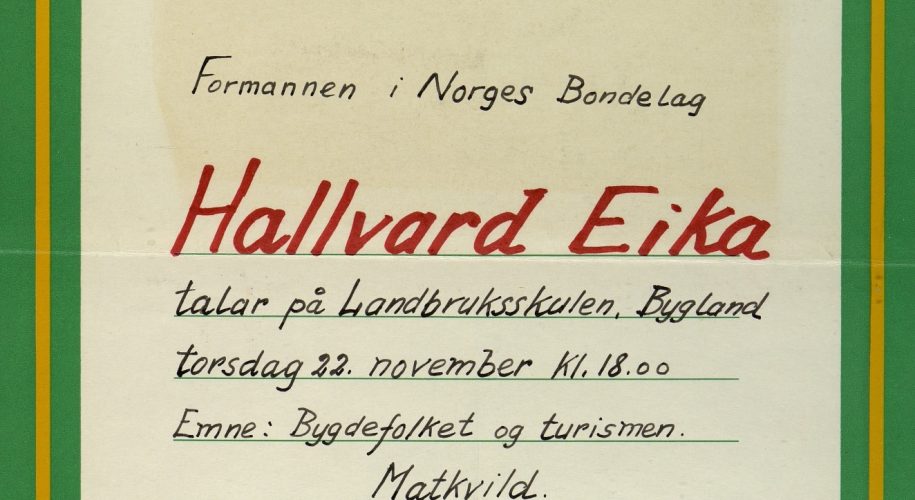 Formannen i Norges Bondelag
Hallvard Eika
talar på Landbruksskulen, Bygland
torsdag 22. november kl. 18.00
Emne: Bygdefolket og turismen.
Matkvild.